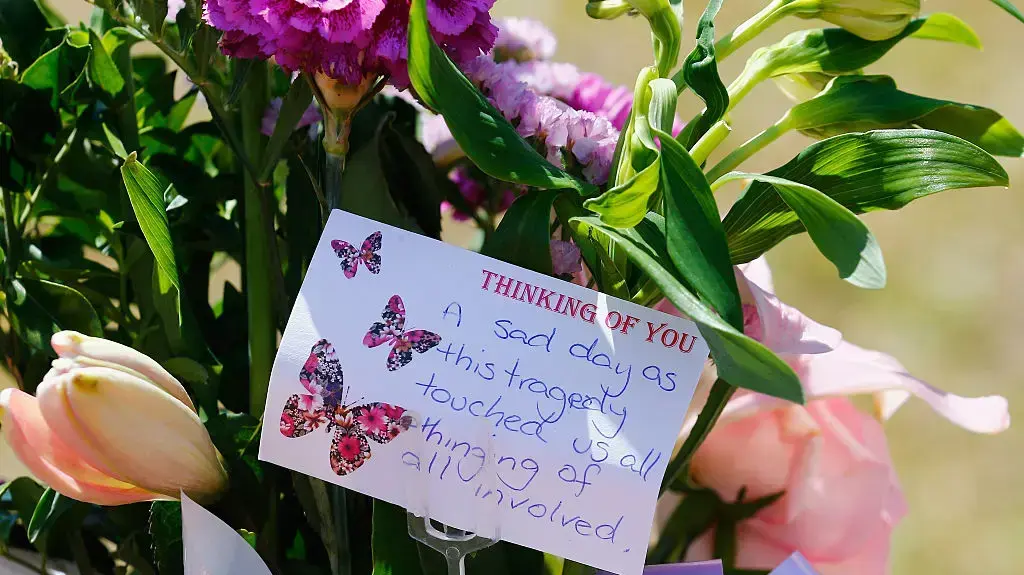 THINKING OF YOU
A sad day as
this tragedty
touched us all
thinging of
all involved.